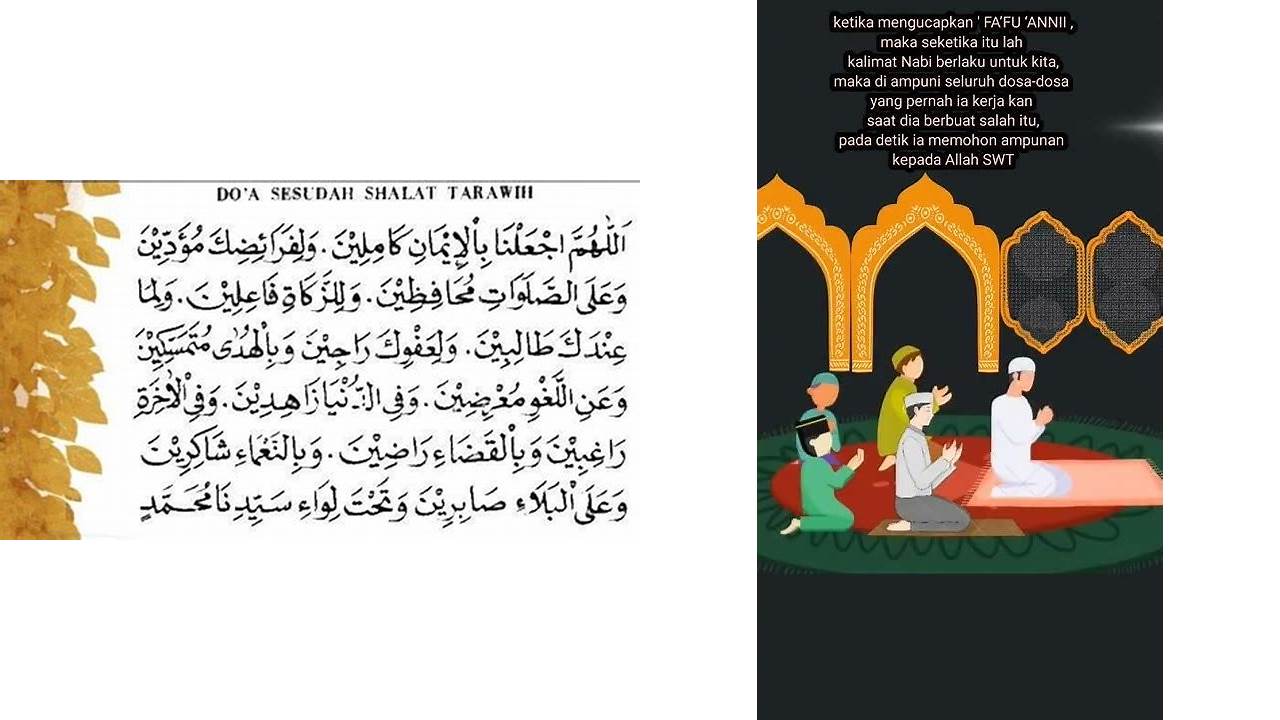 DO'A SESUDAH SHALAT TARAWIH
اَللّٰهُمَّ اجْعَلْنَا بِاْلاِيْمَانِ كَامِلِيْنَ . وَلِفَرَائِضِكَ مُؤَدِّيْنَ
وَعَلَى الصَّلَوَاتِ مُحَافِظِيْنَ . وَلِلزَّكَاةِ فَاعِلِيْنَ . وَلِمَا
عِنْدَكَ طَالِبِيْنَ . وَلِعَفْوِكَ رَاجِيْنَ وَبِاْلهُدٰى مُتَمَسِّكِيْنَ
وَعَنِ اللَّغْوِ مُعْرِضِيْنَ . وَفِى الدُّنْيَا زَاهِدِيْنَ . وَفِى اْلاٰخِرَةِ
رَاغِبِيْنَ وَبِاْلقَضَاءِ رَاضِيْنَ . وَبِالنَّعْمَاءِ شَاكِرِيْنَ
وَعَلَى اْلبَلَاءِ صَابِرِيْنَ وَتَحْتَ لِوَاءِ سَيِّدِنَا مُحَمَّدٍ
ketika mengucapkan ' FA'FU 'ANNII ,
maka seketika itu lah
kalimat Nabi berlaku untuk kita,
maka di ampuni seluruh dosa-dosa
yang pernah ia kerja kan
saat dia berbuat salah itu,
pada detik ia memohon ampunan
kepada Allah SWT